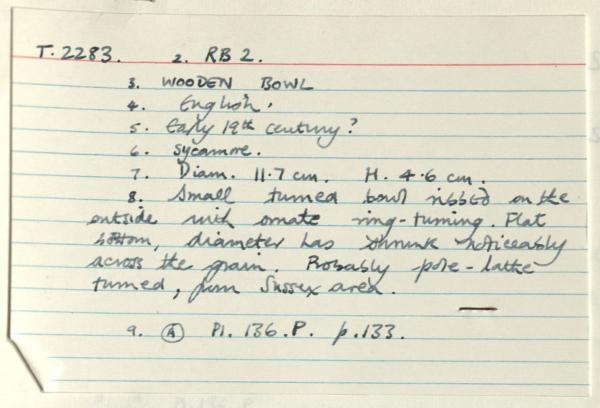 T.2283. 2. RB 2.
3. WOODEN BOWL
4. English.
5. Early 19th century?
6. Sycamore.
7. Diam. 11.7 cm. H. 4.6 cm.
8. Small turned bowl ribbed on the
outside with ornate ring-turning. Flat
bottom, diameter has shrunk noticeably
across the grain. Probably pole-lathe
turned, from Sussex area.
9. A Pl. 136.P. p.133.